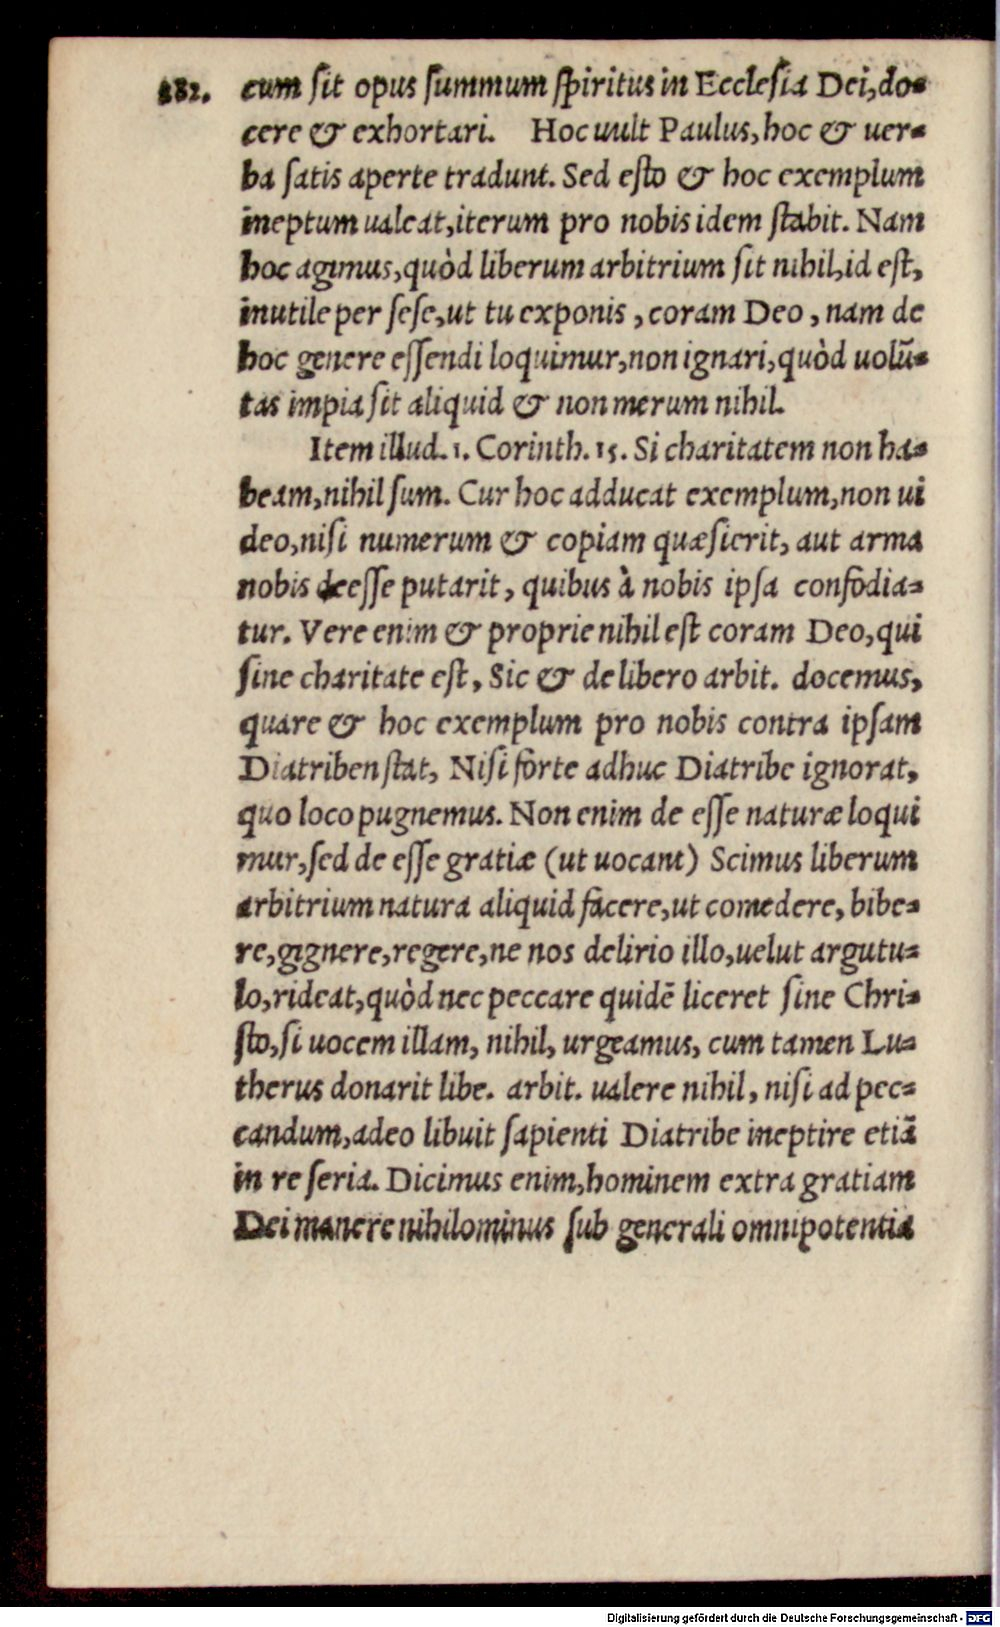 282. cum sit opus summum spiritus in Ecclesia Dei, do=
cere & exhortari. Hoc uult Paulus, hoc & uer=
ba satis aperte tradunt. Sed esto & hoc exemplum
ineptum ualeat, iterum pro nobis idem stabit. Nam
hoc agimus, quòd liberum arbitrium sit nihil, id est,
inutile per sese, ut tu exponis, coram Deo, nam de
hoc genere essendi loquimur, non ignari, quòd uolũ=
tas impia sit aliquid & non merum nihil.
Item illud. 1. Corinth. 15. Si charitatem non ha=
beam, nihil sum. Cur hoc adducat exemplum, non ui
deo, nisi numerum & copiam quæsierit, aut arma
nobis deesse putarit, quibus à nobis ipsa confodia=
tur. Vere enim & proprie nihil est coram Deo, qui
sine charitate est, Sic & de libero arbit. docemus,
quare & hoc exemplum pro nobis contra ipsam
Diatriben stat, Nisi forte adhuc Diatribe ignorat,
quo loco pugnemus. Non enim de esse naturæ loqui
mur, sed de esse gratiæ (ut uocant) Scimus liberum
arbitrium natura aliquid facere, ut comedere, bibe=
re, gignere, regere, ne nos delirio illo, uelut argutu=
lo, rideat, quòd nec peccare quidẽ liceret sine Chri=
sto, si uocem illam, nihil, urgeamus, cum tamen Lu=
therus donarit libe. arbit. ualere nihil, nisi ad pec=
candum, adeo libuit sapienti Diatribe ineptire etiã
in re seria. Dicimus enim, hominem extra gratiam
Dei manere nihilominus sub generali omnipotentia
Digitalisierung gefördert durch die Deutsche Forschungsgemeinschaft - DFG